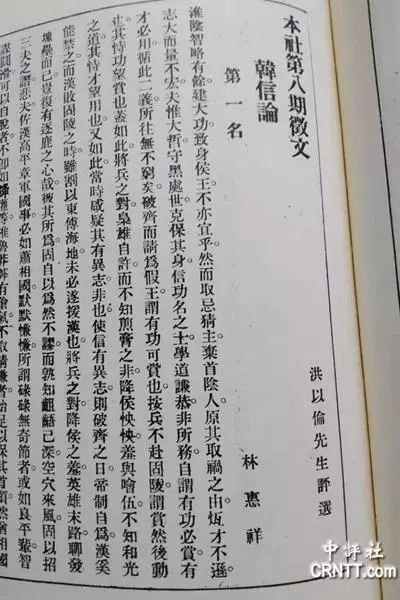 本社第八期徵文
韓信論
洪以倫先生評選
第一名
林惠祥
淮陰智略有餘建大功致身侯王不亦宜乎。然而取忌猜主棄首陰人。原其取禍之由。炫才不遜。
志大而量不宏。夫惟大哲守黑處世。克保其身。信功名之士。學道謙恭。非所務。自謂有功必賞。有
才必用。循此二義。所往無不窮矣。破齊而請爲假王。謂有功可賞也。按兵不赴固陵。謂賞然後動
也。其恃功望賞也蓋如此。將兵之對。梟雄自許。而不知煎膏之非。降侯怏怏。羞與噲伍。不知和光
之道。其恃才望用也。又如此。當時咸疑其有異志。非也。使信有異志。則破齊之日。常制自爲。漢奚
能禁之。而漢敗固陵之時。雖割以東傅海地。未必遂援漢也。將兵之對。降侯之羞。英雄末路。聊發
塊壘而已。豈復有逐鹿之心哉。彼其所爲。固自以爲然不謬。而孰知齟齬已深。空穴來風。固以招
三夫之謂。非夫佐漢高平章軍國事。必如蕭相國默默慊慊。所謂碌碌無奇節者。或如良平輩智
可以自脫者
中評社
CRNTT.com